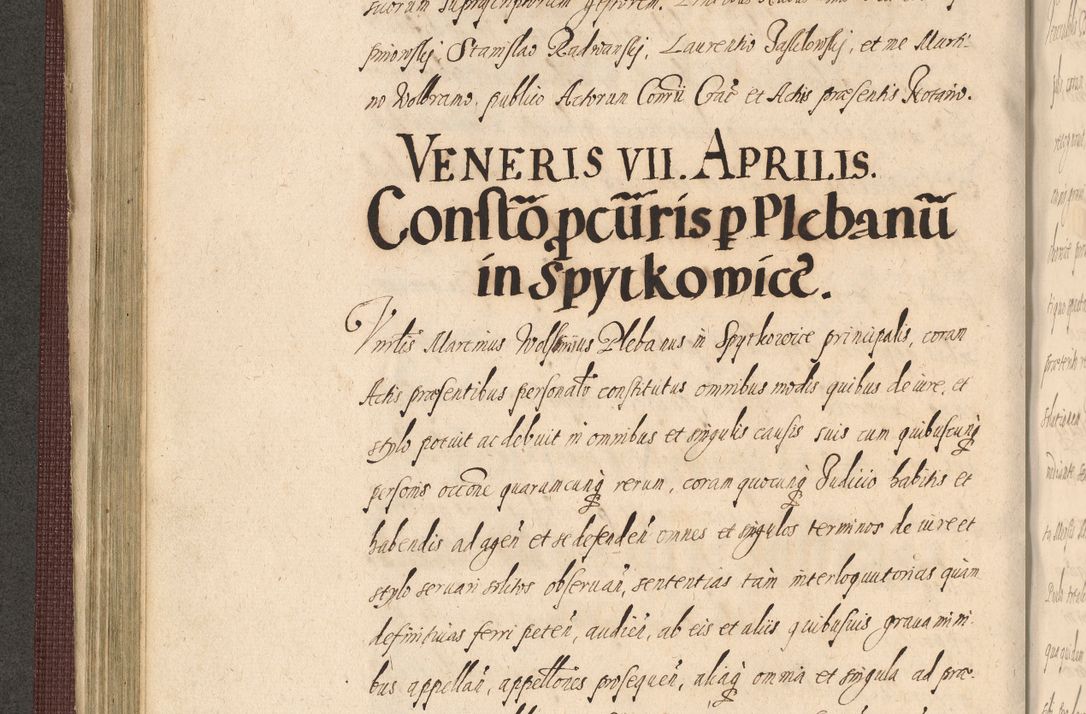 pnowskij Stanislao Radwanskij, Laurentio Zasilowskij, et me Marti-
no Wolbramo, publico Actorum Con̄rii Crac̄ et Actis præsentis Notario.
VENERIS VII. APRILIS.
Constõ ꝓcūris ꝑ Plebanū
in Spytkowicē.
Vnrlis Martinus Wolbramius Plebanus in Spytkowice principalis, coram
Actis præsentibus personalr̃ constitutus omnibus modis quibus de iure, et
stylo potuit ac debuit in omnibus et singulis causis suis cum quibuscunq̨
personis occōne quarumcunq̨ rerum, coram quocunq̨ Iudicio habitis et
habendis ad agen̄ et se defenden̄ omnes et singulos terminos de iure et
stylo servari solitos observan̄, sententias tam interloquutorias quam
definitivas ferri peten̄, audien̄, ab eis et aliis quibusvis gravamini-
bus appellan̄, appellōnes prosequen̄, aliaq̨ omnia et singula ad præ-